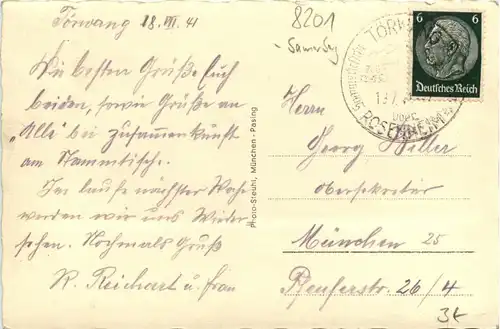 Törwang 18. VII. 41
Die besten Grüße Euch
beiden, sowie Grüße an
"Alle" bei Zusammenkunft
am Stammtische.
Im laufe nächster Woche
werden wir uns Wieder
sehen. Nochmals Gruß
R. Reichart u. frau
Photo-Streubl, München-Pasing
8201
6 6
Deutsches Reich
TÖRWANG
ROSENHEIM
Herrn
Georg
Obersekretär
München 25
26/4
3k